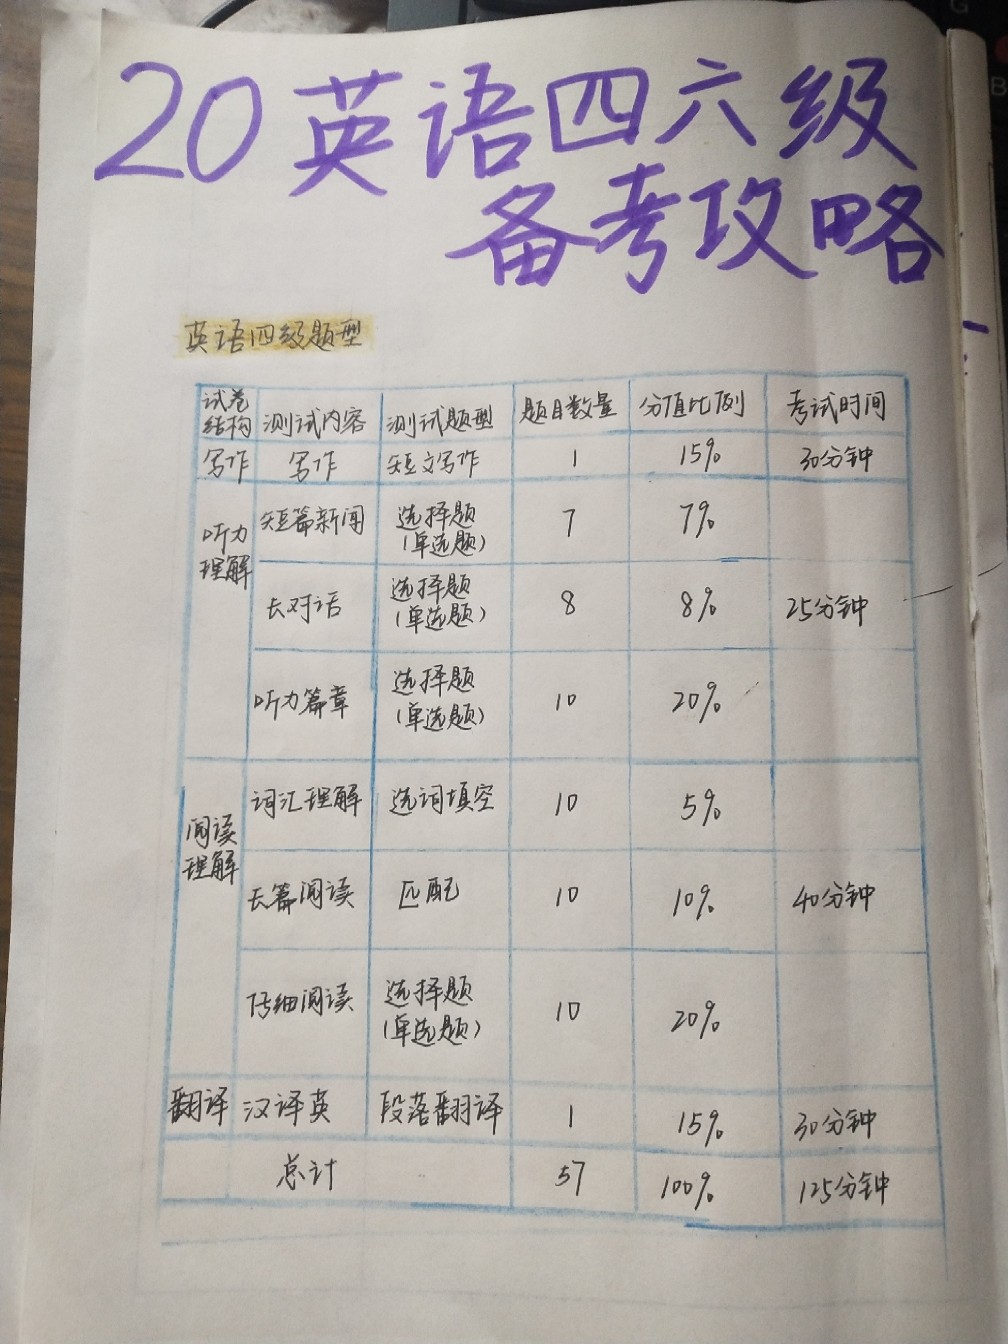 20英语四六级
备考攻略
英语四级题型
试卷结构 测试内容 测试题型 题目数量 分值比例 考试时间
写作 写作 短文写作 1 15% 30分钟
听力理解 短篇新闻 选择题(单选题) 7 7%
长对话 选择题(单选题) 8 8% 25分钟
听力篇章 选择题(单选题) 10 20%
阅读理解 词汇理解 选词填空 10 5%
长篇阅读 匹配 10 10% 40分钟
仔细阅读 选择题(单选题) 10 20%
翻译 汉译英 段落翻译 1 15% 30分钟
总计 57 100% 125分钟